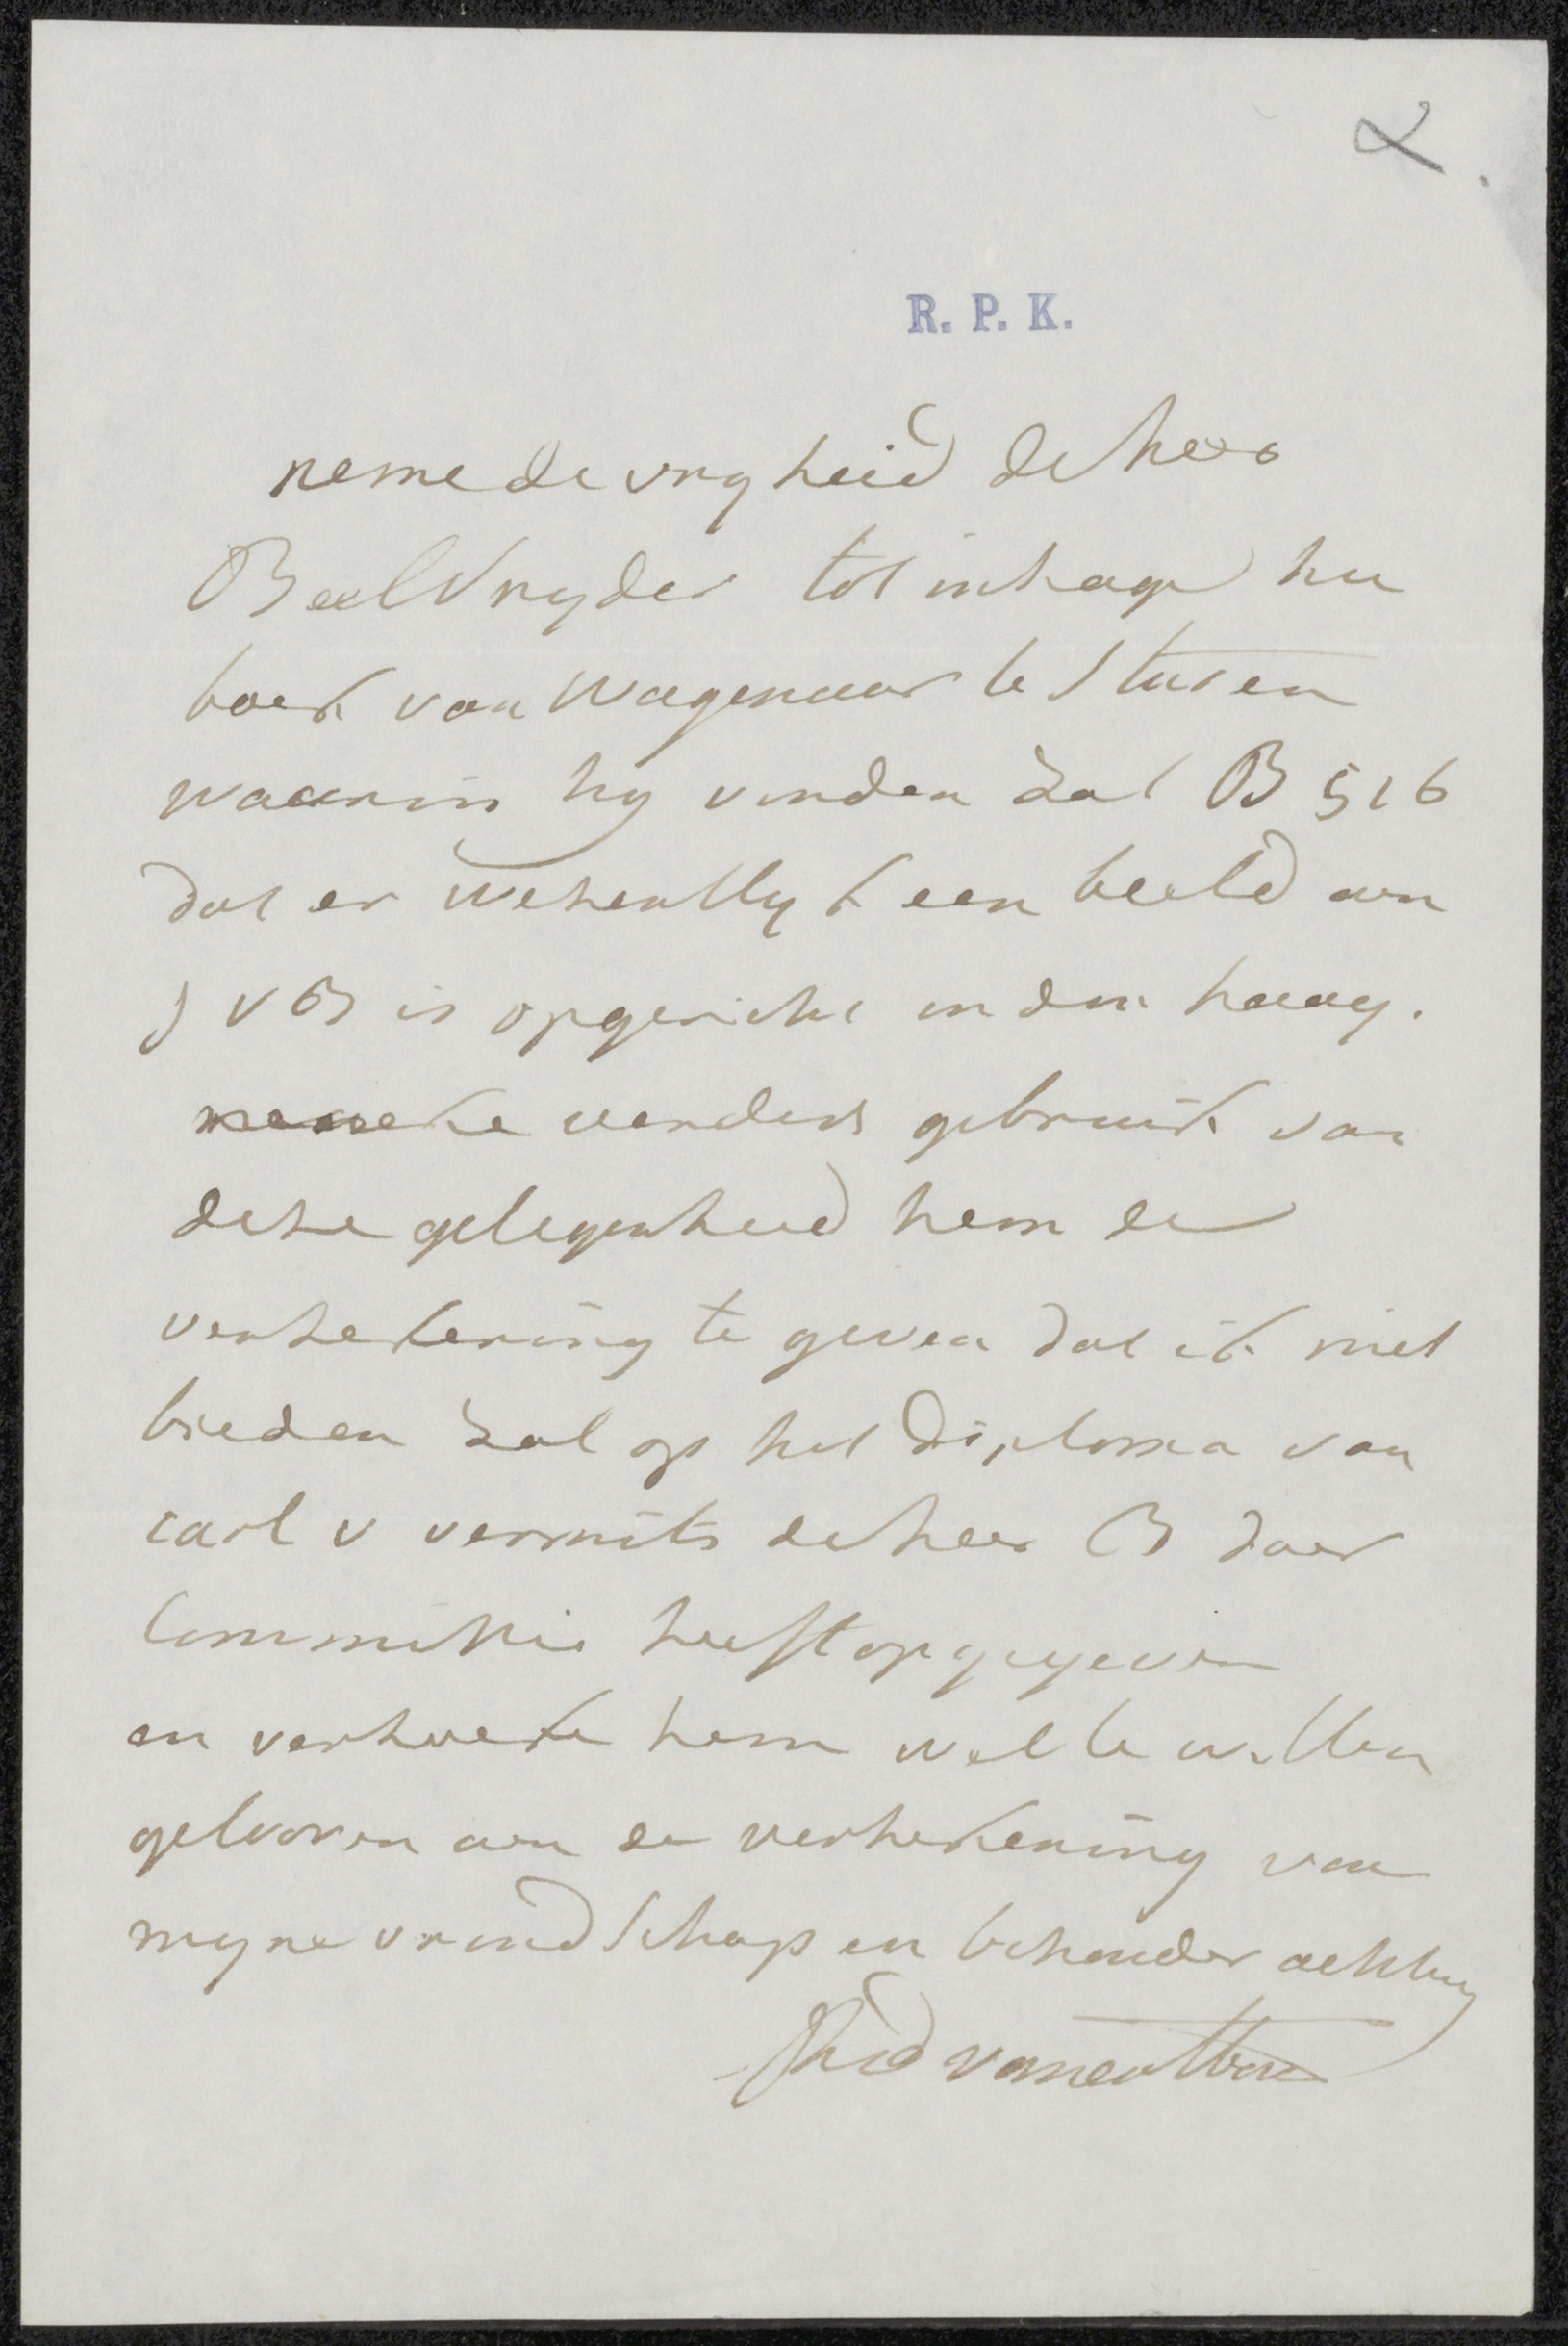 R. P. K.
neme de vryheid de heer
Beelsnyder tot inhage het
boek van Wagenaar te sturen
waarin hy vinden zal B 516
dat er wezentlyk een beeld aan
J v B is opgericht in den haag.
maake verders gebruik van
deze gelegenheid hem de
verzekering te geven dat ik niet
bieden zal op het Diploma van
carl v vermits de heer B daar
Commissie heeft opgegeven
en verzoeke hem wel te willen
gelooven aan de verzekering van
myne vrindschap en byzonder achting